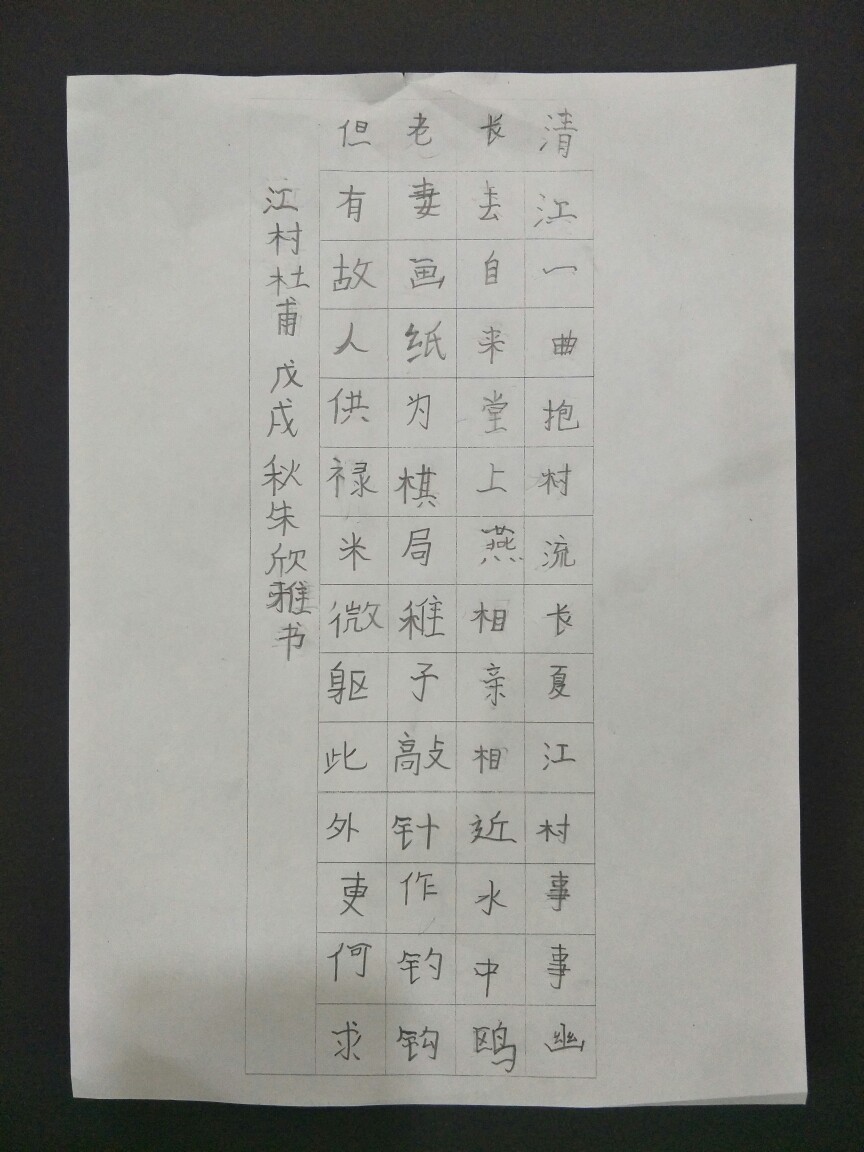 清江一曲抱村流长夏江村事事幽
长去自来堂上燕相亲相近水中鸥
老妻画纸为棋局稚子敲针作钓钩
但有故人供禄米微躯此外更何求
江村杜甫 戊戌 秋朱欣雅书